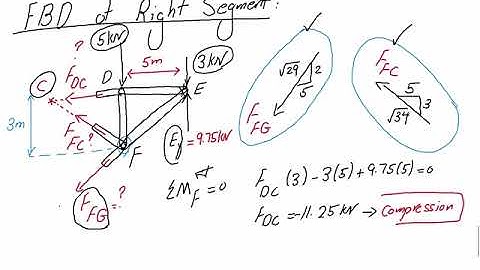 FBD of Right Segment:
?
5kN
5m
3kN
C
F DC
D
E
3m
F FC ?
F
E y = 9.75kN
F FG = ?
ΣM F = 0
√29
2
5
F FG
F FC
5
3
√34
F DC (3) - 3(5) + 9.75(5) = 0
F DC = -11.25 kN → Compression